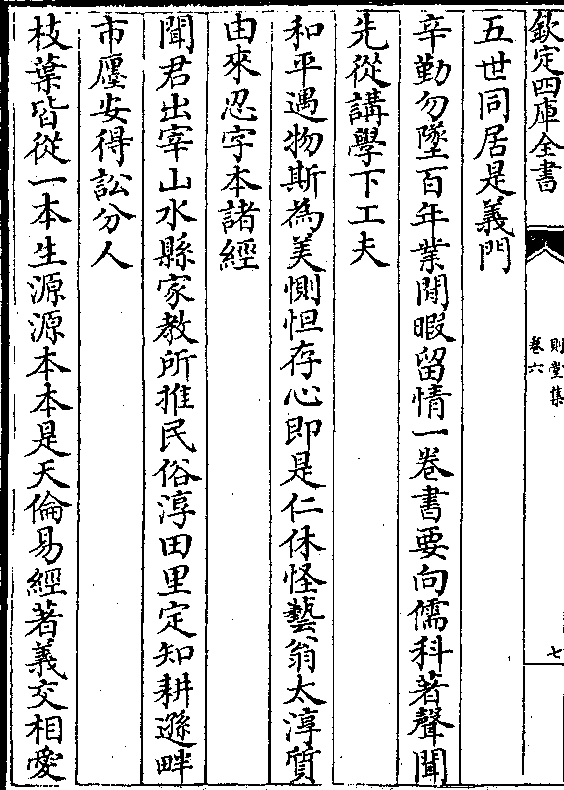 欽定四庫全書
則堂集
卷六
七
五世同居是義門
辛勤勿墜百年業閒暇留情一卷書要向儒科著聲聞
先從講學下工夫
和平遇物斯為美惻怛存心即是仁休怪藝翁太淳質
由來忍字本諸經
聞君出宰山水縣家教所推民俗淳田里定知耕遜畔
市廛安得訟分人
枝葉皆從一本生源源本本是天倫易經著義交相愛